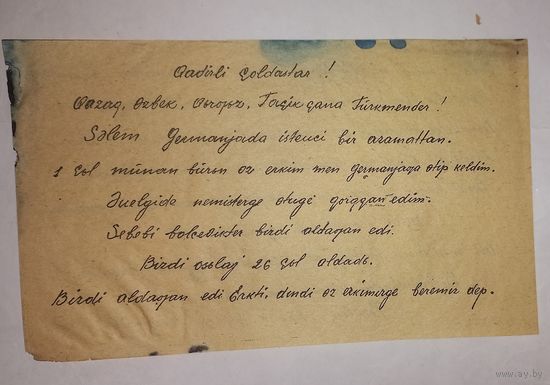 Qadirli çoldastar!
Qazaq, Özbek, Qorqoz, Taçik çana Türkmender!
Sälem Germanjada istevci bir azamattan.
1 çol münan bürön öz erkim men germanjaga ötip keldim.
Äuelgide nemisterge ötuge qorqqan edim.
Sebebi bolcevikter bizdi aldagan edi.
Bizdi osolaj 26 çol aldadь.
Bizdi aldagan edi Erkti, dindi öz erkinerge beremiz dep.
www.ay.by